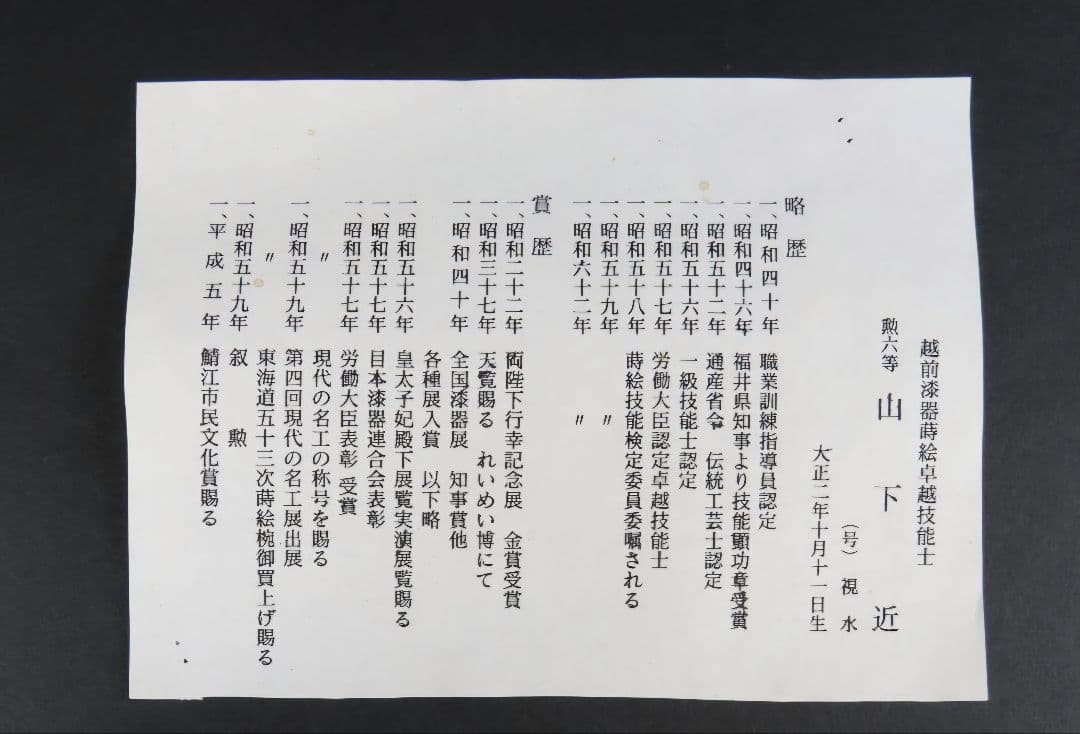 越前漆器蒔絵卓越技能士
勲六等 山下 近
(号) 視水
大正二年十月十一日生
略歴
一、昭和四十年 職業訓練指導員認定
一、昭和四十六年 福井県知事より技能顕功章受賞
一、昭和五十二年 通産省令 伝統工芸士認定
一、昭和五十六年 一級技能士認定
一、昭和五十七年 労働大臣認定卓越技能士
一、昭和五十八年 蒔絵技能検定委員委嘱される
一、昭和五十九年 〃
一、昭和六十二年 〃
賞歴
一、昭和二十二年 両陛下行幸記念展 金賞受賞
一、昭和三十七年 天覧賜る れいめい博にて
一、昭和四十年 全国漆器展 知事賞他
各種展入賞 以下略
一、昭和五十六年 皇太子妃殿下展覧実演展覧賜る
一、昭和五十七年 日本漆器連合会表彰
一、昭和五十七年 労働大臣表彰受賞
〃 現代の名工の称号を賜る
一、昭和五十九年 第四回現代の名工展出展
〃 東海道五十三次蒔絵椀御買上げ賜る
一、昭和五十九年 叙勲
一、平成五年 鯖江市民文化賞賜る